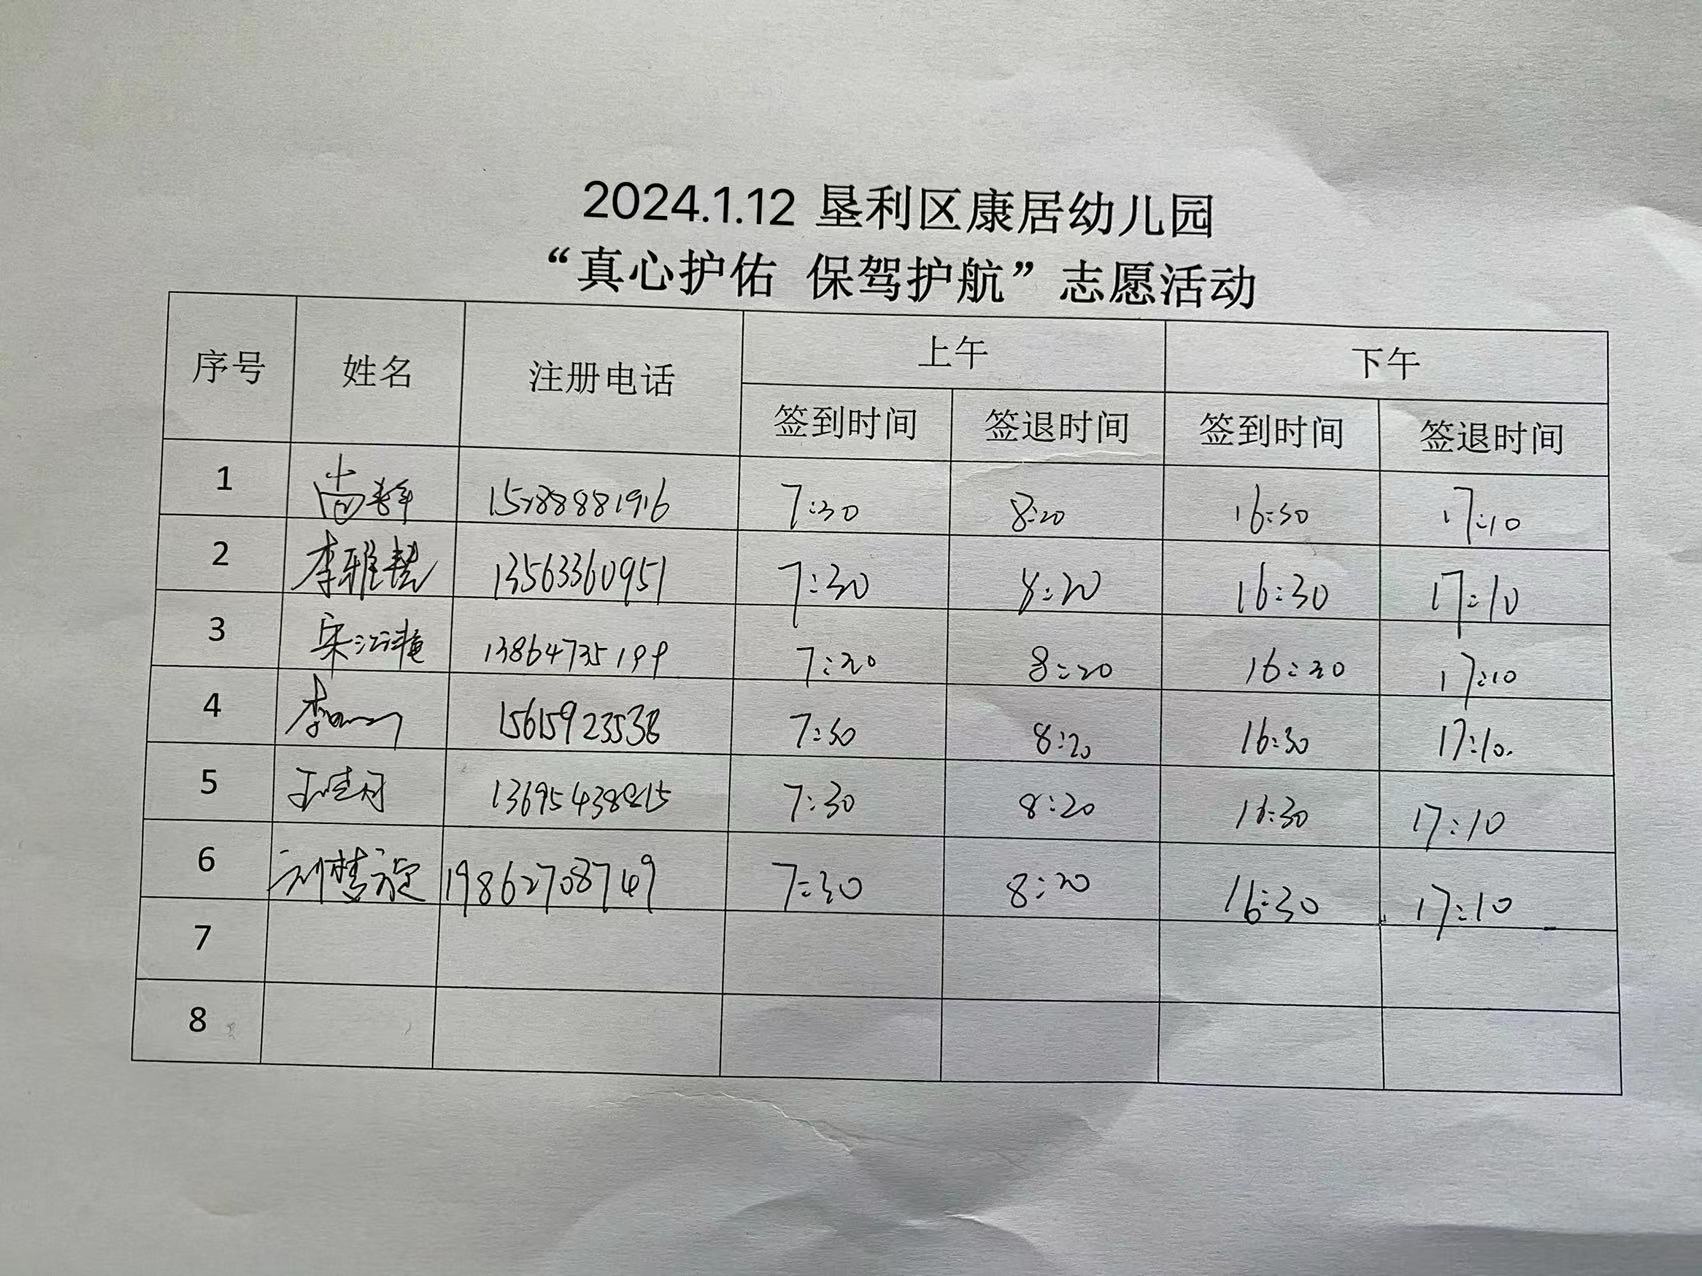 2024.1.12 垦利区康居幼儿园
“真心护佑 保驾护航”志愿活动
序号 姓名 注册电话 上午 下午
签到时间 签退时间 签到时间 签退时间
1 尚 7:30 8:20 16:30 17:10
2 李雅 13563360951 7:30 8:20 16:30 17:10
3 宋 13864735199 7:30 8:20 16:30 17:10
4 李 15615923538 7:30 8:20 16:30 17:10.
5 王 7:30 8:20 16:30 17:10
6 刘梦旋 19862708749 7:30 8:20 16:30 17:10
7
8